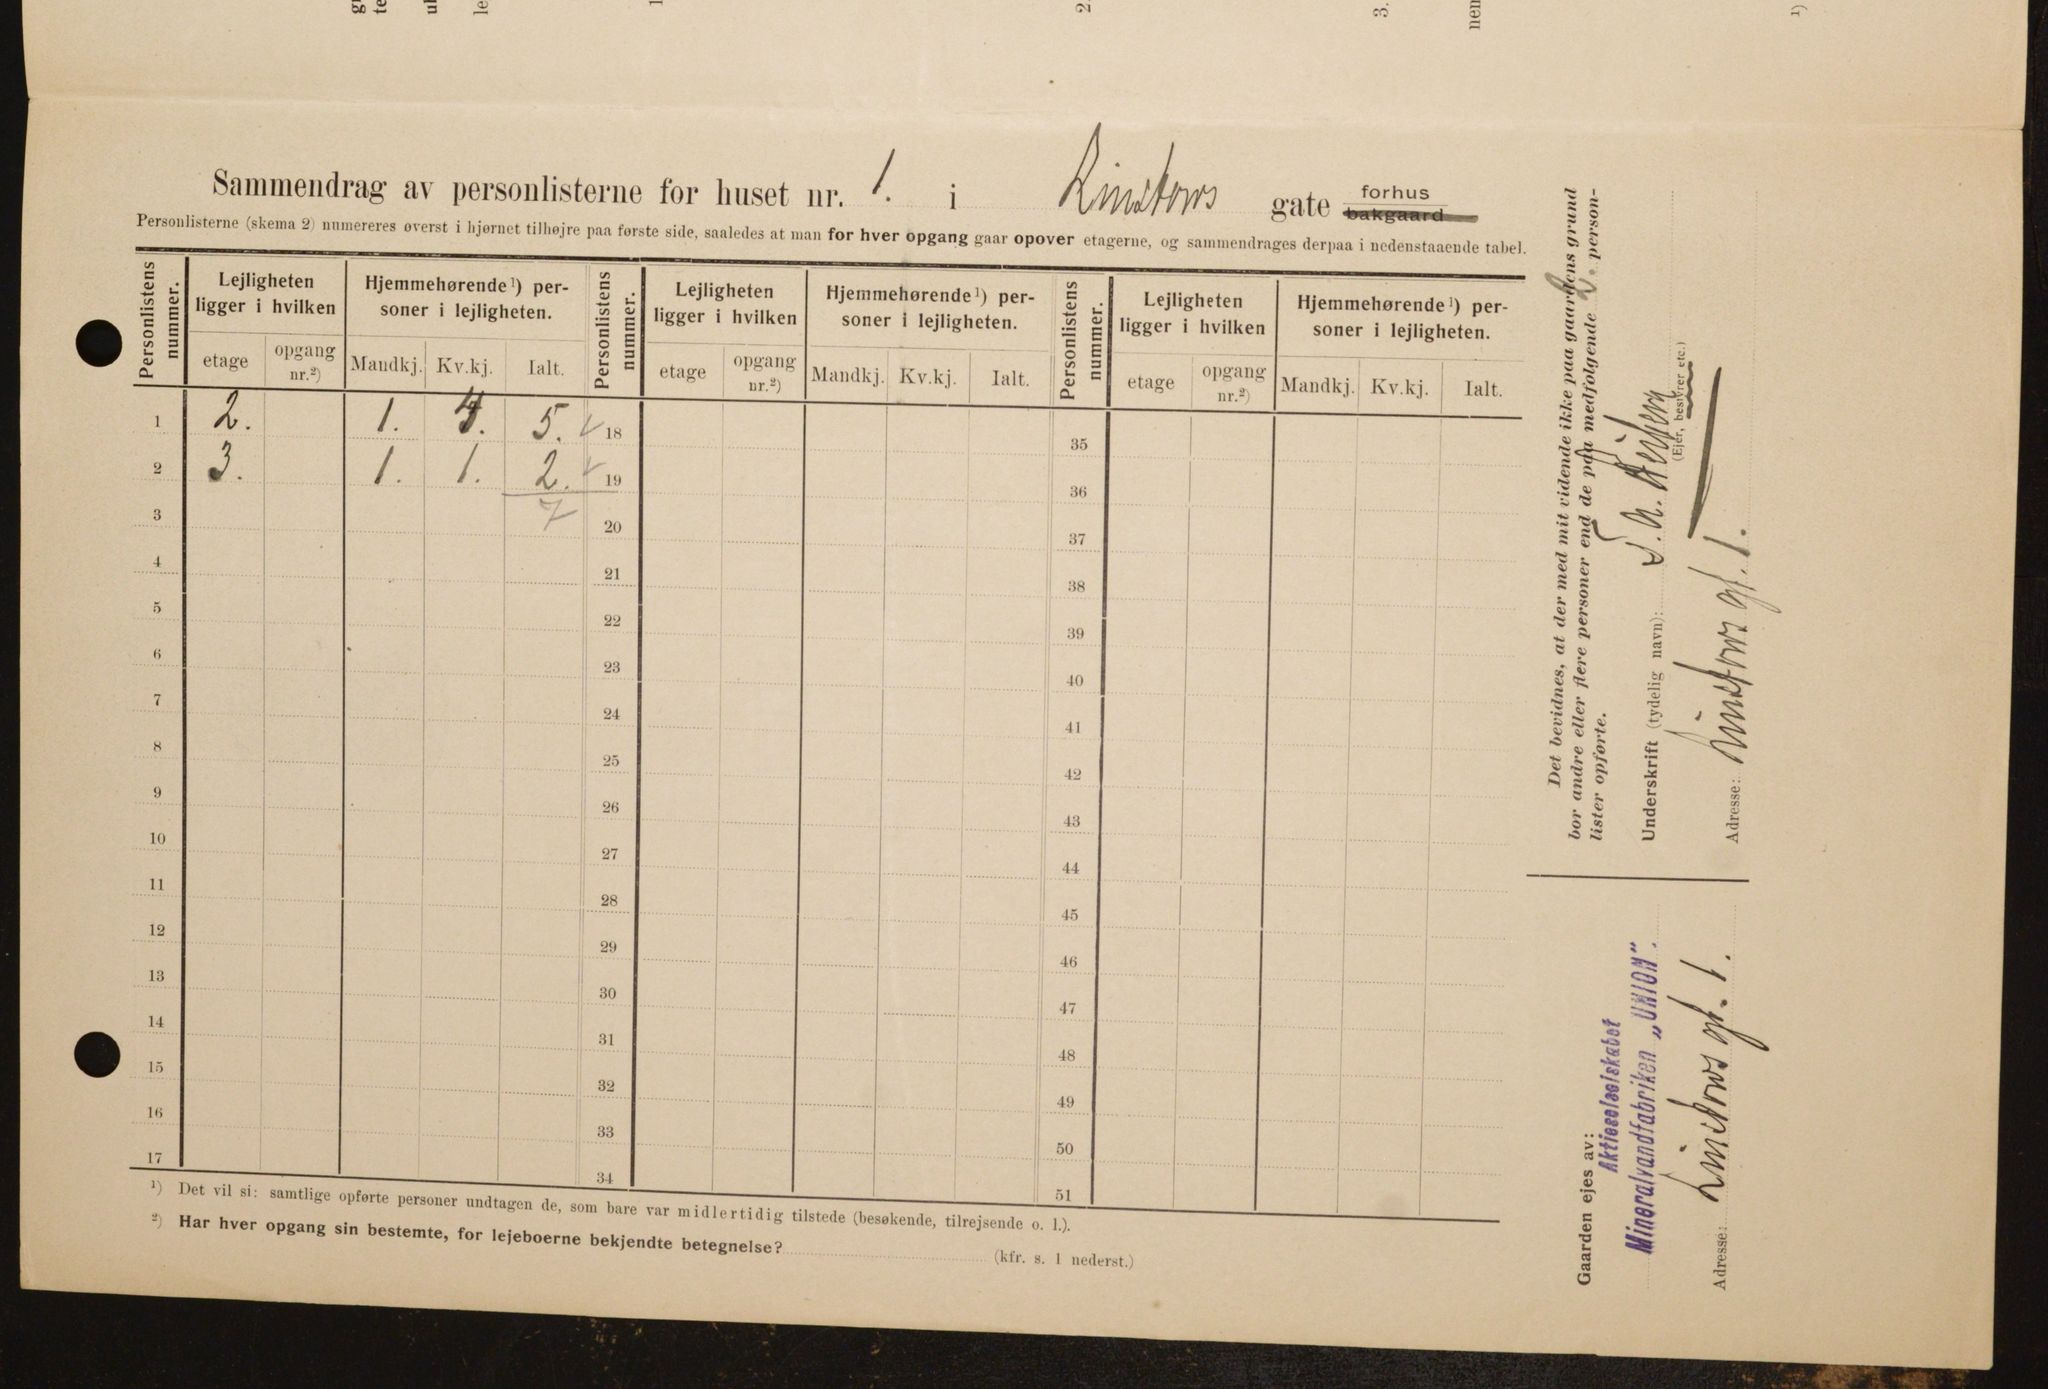 Sammendrag av personlisterne for huset nr. 1. i Linstows gate forhus bakgaard
Personlisterne (skema 2) numereres øverst i hjørnet tilhøjre paa første side, saaledes at man for hver opgang gaar opover etagerne, og sammendrages derpaa i nedenstaaende tabel.
Personlistens nummer. Lejligheten ligger i hvilken Hjemmehørende ¹) personer i lejligheten. Personlistens nummer. Lejligheten ligger i hvilken Hjemmehørende ¹) personer i lejligheten. Personlistens nummer. Lejligheten ligger i hvilken Hjemmehørende ¹) personer i lejligheten.
etage opgang nr.²) Mandkj. Kv.kj. Ialt. etage opgang nr.²) Mandkj. Kv.kj. Ialt. etage opgang nr.²) Mandkj. Kv.kj. Ialt.
1 2. 1. 4. 5. 18 35
2 3. 1. 1. 2. 19 36
3 7 20 37
4 21 38
5 22 39
6 23 40
7 24 41
8 25 42
9 26 43
10 27 44
11 28 45
12 29 46
13 30 47
14 31 48
15 32 49
16 33 50
17 34 51
¹) Det vil si: samtlige opførte personer undtagen de, som bare var midlertidig tilstede (besøkende, tilrejsende o. l.).
²) Har hver opgang sin bestemte, for lejeboerne bekjendte betegnelse? (kfr. s. 1 nederst.)
Det bevidnes, at der med mit vidende ikke paa gaardens grund
bor andre eller flere personer end de paa medfølgende 2. person-
lister opførte.
Underskrift (tydelig navn):
(Ejer, bestyrer etc.)
Adresse: Linstows gt. 1.
Gaarden ejes av:
Aktieselselskabet
Mineralvandfabriken „UNION".
Adresse: Linstows gt. 1.